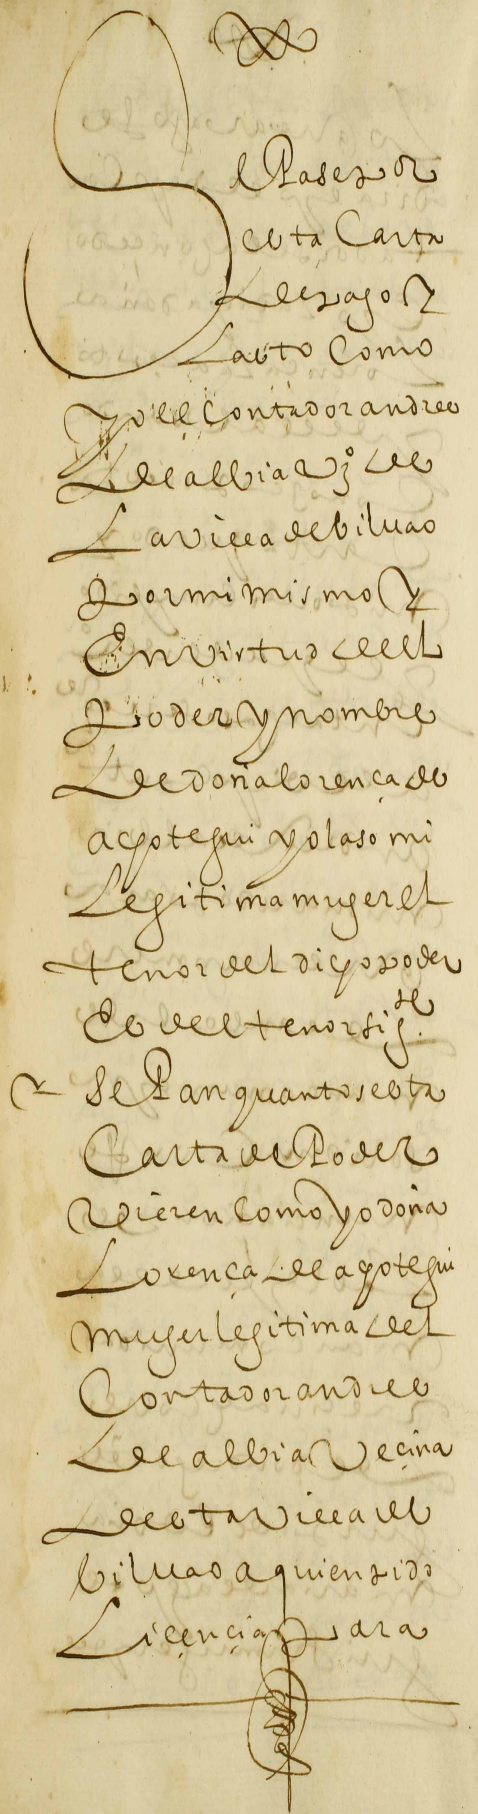 Se Pase por
esta Carta
de pago y
lasto como
yo el contador andres
de albia Vzº de
La villa de bilvao
Por mi mismo y
En virtud de el
Poder y nombre
de doña lorença de
açotegui yolaso mi
Legitima muger el
tenor del dicho poder
Es del tenor sigte
Sepan quantos esta
Carta de Poder
Vieren como yo doña
Lorença de açotegui
muger legitima del
Contador andres
de albia Vecina
de esta villa de
bilvao a quien pido
Licencia para